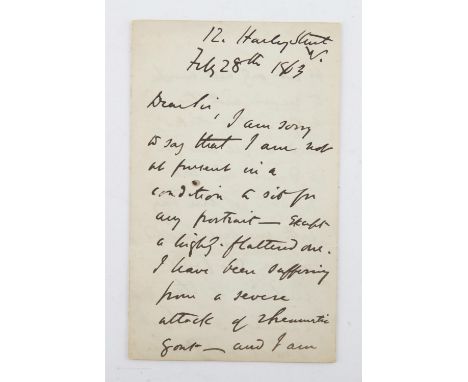 12. Harley Street
W.
Feby 28th 1863
Dear Sir,
I am sorry
to say that I am not
at present in a
condition to sit for
any portrait — Except
a highly-flattered one.
I have been suffering
from a severe
attack of rheumatic
gout — and I am